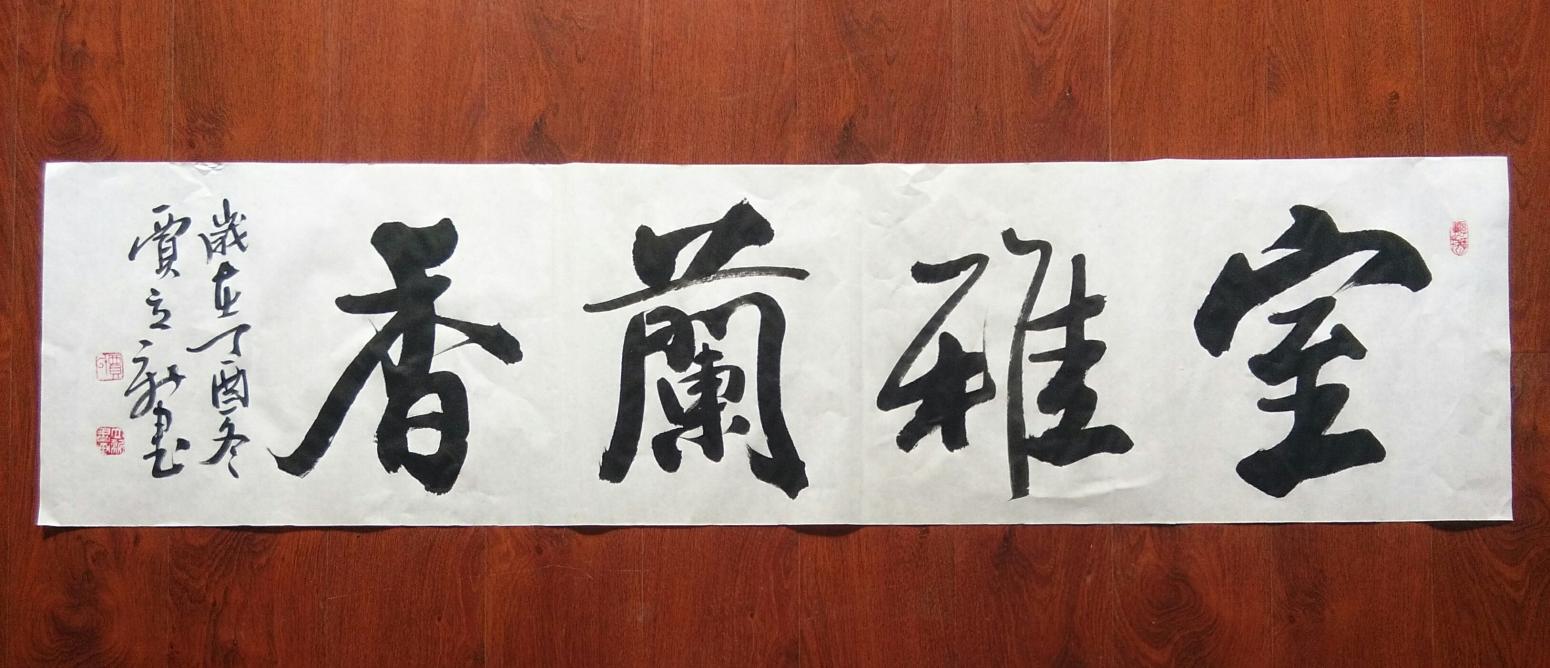 室雅蘭香
歲在丁酉冬
賈立新書